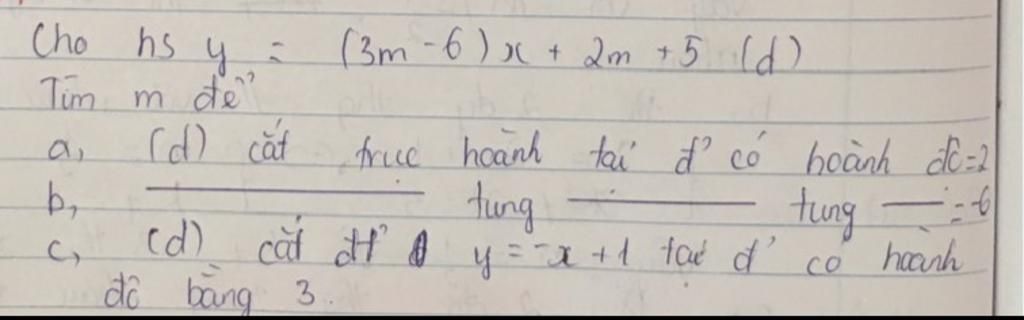 Cho hs y = (3m - 6)x + 2m + 5 (d)
Tìm m để
a, (d) cắt trục hoành tại đ' có hoành độ = 2
b, ——— tung ——— tung — = -6
c, (d) cắt đt' y = -x + 1 tại đ' có hoành
độ bằng 3.